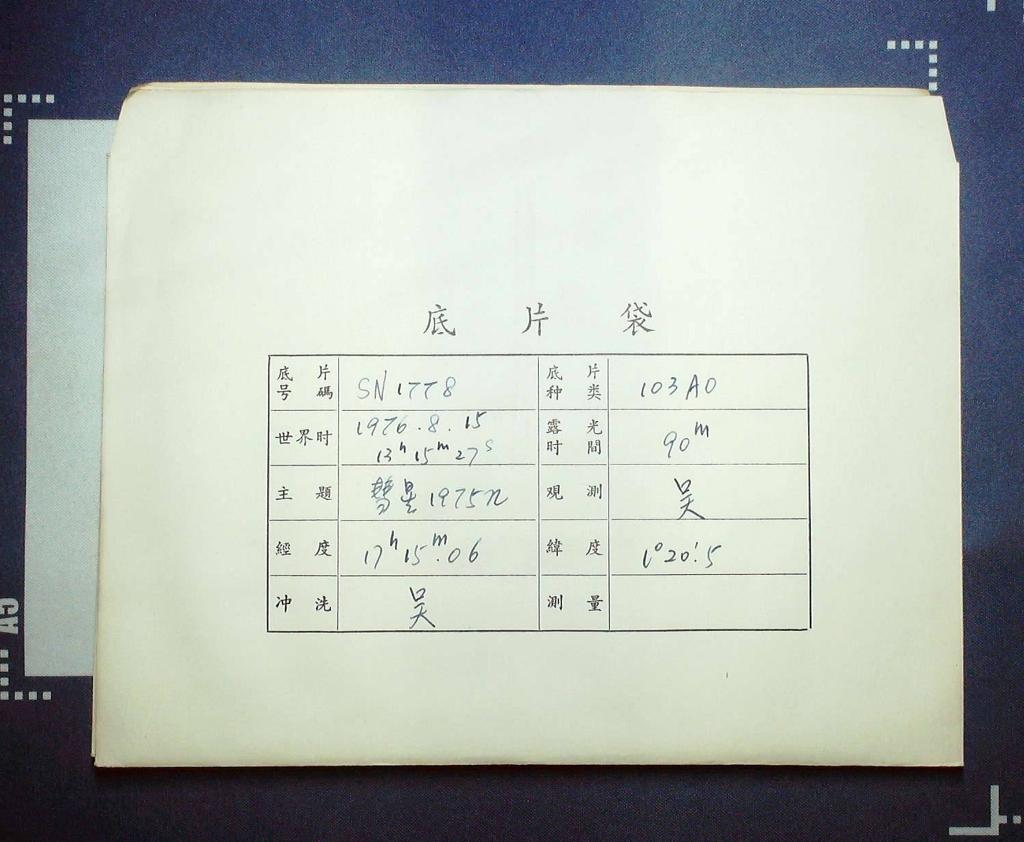 底片袋
底片号碼 SN 1778 底片种类 103AO
世界时 1976.8.15 13h15m27s 露光时間 90m
主題 彗星 1975n 观測 吴
經度 17h15m.06 緯度 1°20'.5
冲洗 吴 測量
A5